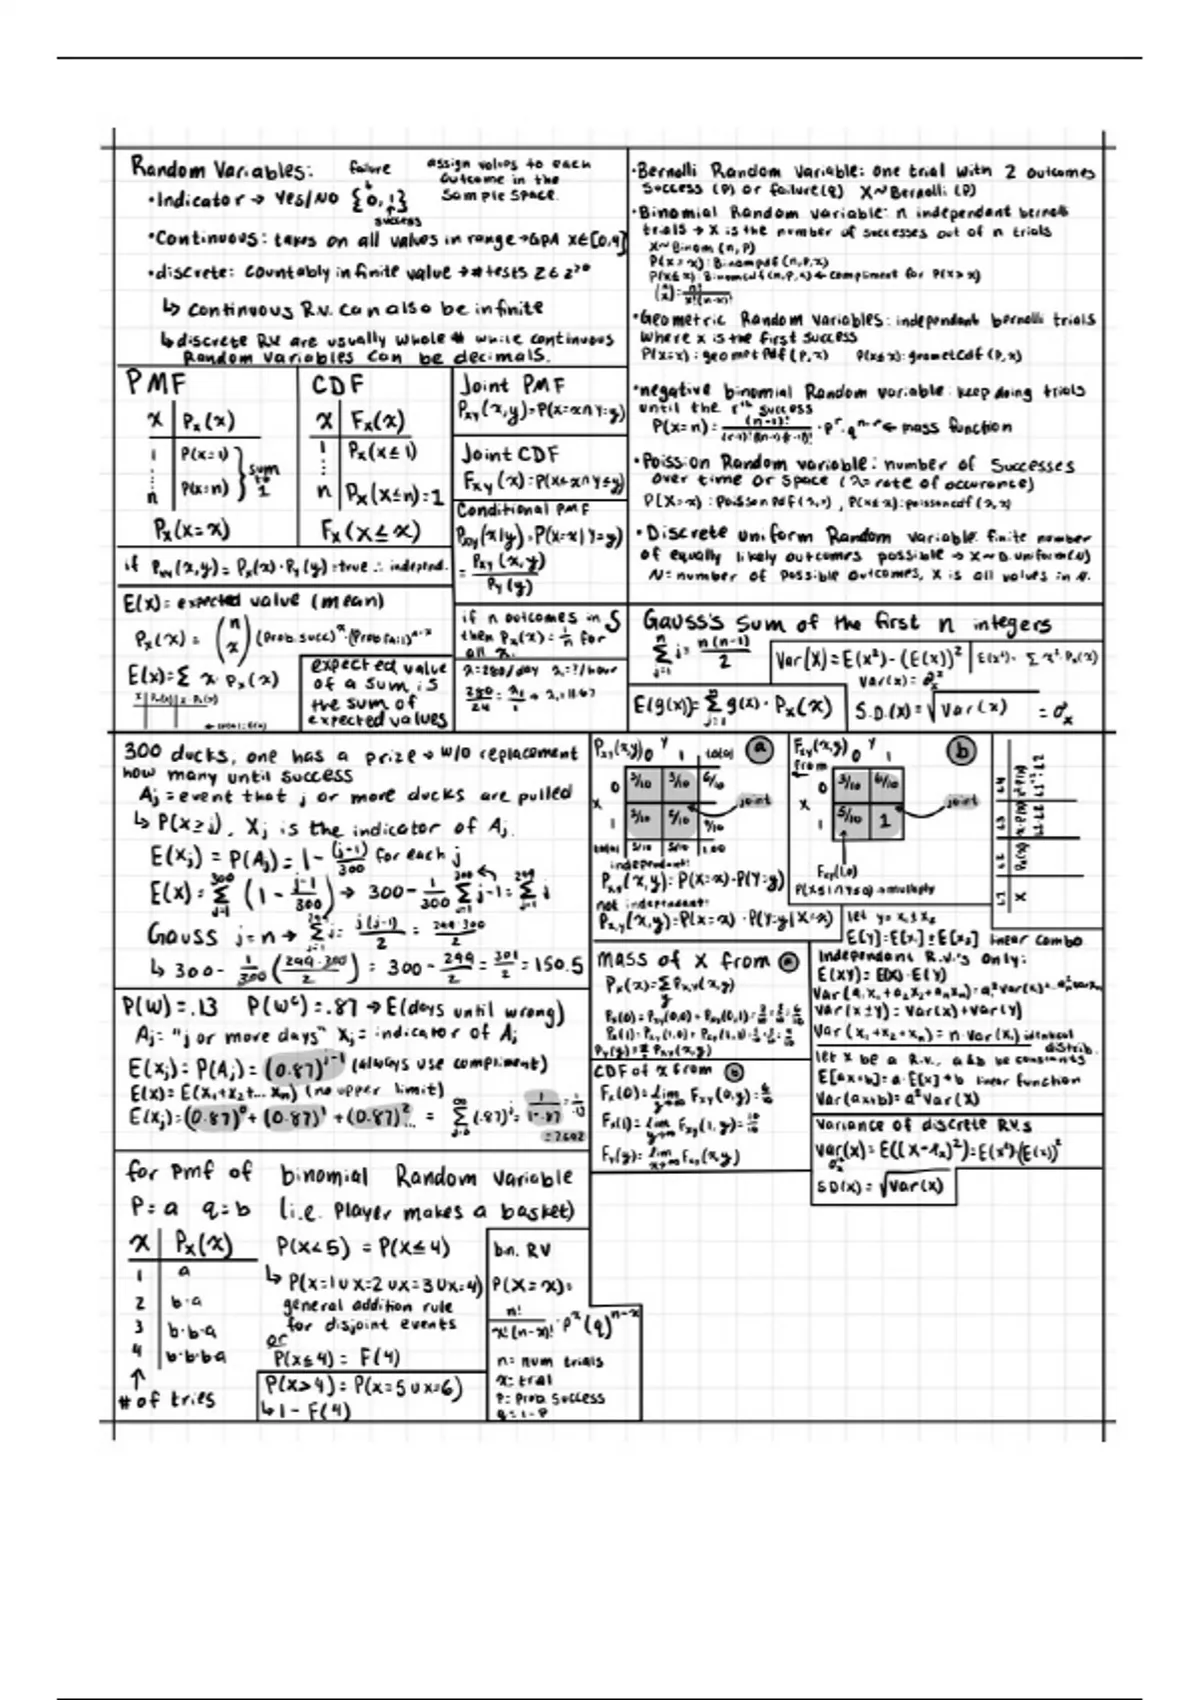 Random Variables:
failure
assign values to each
outcome in the
sample space.
•Indicator → Yes/No {0,1}
success
•Continuous: takes on all values in range →GPA X∈[0,4]
•discrete: countably infinite value → # tests Z∈Z≥0
↳ Continuous R.V. can also be infinite
↳discrete RV are usually whole # while continuous
Random Variables can be decimals.
•Bernolli Random Variable: one trial with 2 outcomes
success (P) or failure(q) X~Bernolli (P)
•Binomial Random variable: n independent bernolli
trials → X is the number of successes out of n trials
X~Binom (n, P)
P(x=x): Binompdf(n,P,x)
P(x≤x): Binomcdf(n,P,x) ← compliment for P(x>x)
•Geometric Random Variables: independent bernolli trials
Where x is the first success
P(x=x): geometPdf(P,x) P(x≤x): geometcdf(P,x)
•negative binomial Random variable: keep doing trials
until the rth success
P(x=n) = (n-1)!/(r-1)!((n-1)-(r-1))! · p^r · q^n-r ← mass function
•Poission Random variable: number of Successes
over time or space (λ=rate of occurance)
P(X=x): PoissonPdf(λ,x), P(x≤x): poissoncdf(λ,x)
•Discrete uniform Random variable: finite number
of equally likely outcomes possible → X~D.uniform(N)
N=number of possible outcomes, X is all values in N.
PMF
x | Px(x)
1 | P(x=1)
n | P(x=n)
sum to 1
Px(X=x)
CDF
x | Fx(x)
1 | Px(x≤1)
n | Px(x≤n)=1
Fx(X≤x)
Joint PMF
Pxy(x,y)=P(X=x∩Y=y)
Joint CDF
Fxy(x)=P(X≤x∩Y≤y)
Conditional PMF
Px|y(x|y)=P(X=x|Y=y)
= Pxy(x,y)/Py(y)
if Pxy(x,y)=Px(x)·Py(y)=true ∴ independ.
E(x)= expected value (mean)
Px(x) = (n x)(Prob.succ)^x·(Probfail)^n-x
E(x)=Σ x·Px(x)
expected value
of a sum is
the sum of
expected values
if n outcomes in S
then Px(x)=1/n for
all x.
λ=280/day λ=?/hour
280/24 = λ/1 → λ=11.67
Gauss's Sum of the first n integers
Σ j= n(n-1)/2
Var(X)=E(x²)-(E(x))²
E(x²)= Σ x²·Px(x)
Var(x)=σ²x
E(g(x))=Σ g(x)·Px(x)
S.D.(x)=√Var(x) =σx
300 ducks, one has a prize → w/o replacement
how many until success
Aj = event that j or more ducks are pulled
↳ P(X≥j), Xj is the indicator of Aj.
E(xj) = P(Aj) = 1 - (j-1)/300 for each j
E(x)=Σ (1 - j-1/300) → 300 - 1/300 Σ j-1 = Σ j
Gauss j=n → Σ j= j(j-1)/2 = 299·300/2
↳ 300 - 1/300 (299·300/2) = 300 - 299/2 = 301/2 = 150.5
P(W)=.13 P(W^c)=.87 → E(days until wrong)
Aj = "j or more days" Xj = indicator of Aj
E(Xj)=P(Aj)=(0.87)^j-1 (always use compliment)
E(x)=E(x1+x2+...xn) (no upper limit)
E(Xj)=(0.87)^0+(0.87)^1+(0.87)^2... = Σ(.87)^j = 1/1-.87 = 1/.13
=7.692
Pxy(x,y) Y
0 1 total
a
X
0 | 3/10 | 3/10 | 6/10
joint
total 5/10 5/10 1.00
independent:
Pxy(x,y)=P(X=x)·P(Y=y)
not independent:
Px,y(x,y)=P(X=x)·P(Y=y|X=x)
Fxy(x,y) Y
from
0 1
b
X
0 | 3/10 | 6/10
1 | 5/10 | 1
joint
Fxy(1,0)
P(X≤1∩Y≤0)→multiply
mass of X from a
Px(x)=Σ Pxy(x,y)
CDF of x from b
Fx(0)=lim Fxy(0,y)=6/10
Fx(1)=lim Fxy(1,y)=10/10
Fy(y)=lim Fxy(x,y)
let y=x1±x2
E[Y]=E[X1]±E[X2] linear combo
Independent R.V.'s Only:
E(XY)=E(X)·E(Y)
Var(x±y)=Var(x)+Var(y)
Var(x1+x2+xn)=n·Var(x1) identical
distrib.
let x be a R.V., a&b be constants
E[ax+b]=a·E[x]+b linear function
Var(ax+b)=a²Var(X)
Variance of discrete R.V.s
S.D(x)=√Var(x)
for pmf of binomial Random variable
P=a q=b (i.e. Player makes a basket)
x | Px(x)
1 | a
2 | b·a
3 | b·b·a
4 | b·b·b·a
↑
# of tries
P(X<5) = P(X≤4)
↳ P(x=1∪x=2∪x=3∪x=4)
general addition rule
for disjoint events
or
P(x≤4) = F(4)
P(x>4)=P(x=5∪x=6)
↳1 - F(4)
bn. RV
P(X=x)=
n!/x!(n-x)! · P^x(q)^n-x
n=num trials
x=trial
P=Prob success
q=1-P